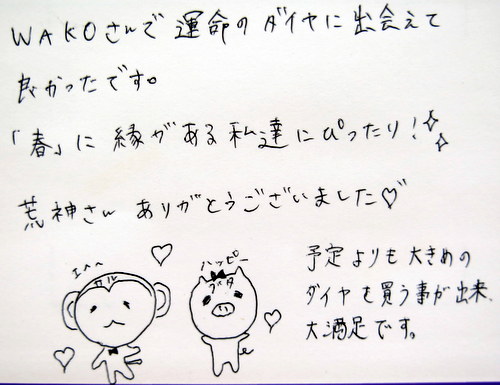 WAKOさんで運命のダイヤに出会えて
良かったです。
「春」に縁がある私達にぴったり!
荒神さん ありがとうございました♡
エヘヘ
サル
ハッピー
ブタ
予定よりも大きめの
ダイヤを買う事が出来、
大満足です。